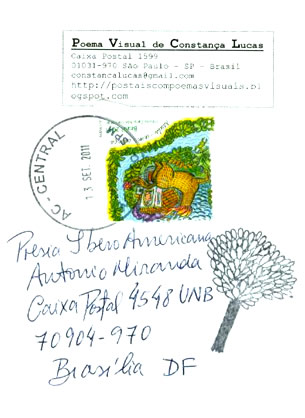 Poema Visual de Constança Lucas
Caixa Postal 1599
01031-970 São Paulo - SP - Brasil
constancalucas@gmail.com
http://postaiscompoemasvisuais.bl
ogspot.com
AC-CENTRAL
13 SET. 2011
SPM
Poesia Ibero Americana
Antonio Miranda
Caixa Postal 4548 UNB
70904-970
Brasília DF